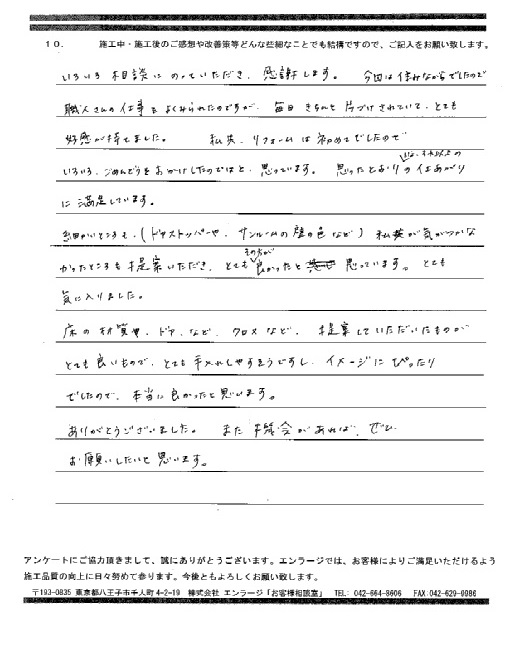 10. 施工中・施工後のご感想や改善策等どんな些細なことでも結構ですので、ご記入をお願い致します。
いろいろ相談にのっていただき、感謝します。 今回は住みながらでしたので
職人さんの仕事をよくみられたのですが、毎日きちんと片づけされていて、とても
好感が持てました。 私共、リフォームは初めてでしたので
いろいろ、ごめんどうをおかけしたのではと、思っています。 思ったとおりの仕あがり
に満足しています。
細かいところも、(ドアストッパーや、サンルームの壁の色など) 私共が気がつかな
かったところも提案いただき、とてもその方が良かったと思っています。とても
気に入りました。
床の材質や、ドア、など、クロスなど、 提案していただいたものが
とても良いもので、とても手入れしやすそうですし、イメージにぴったり
でしたので、本当に良かったと思います。
ありがとうございました。 また機会があれば、ぜひ
お願いしたいと思います。
アンケートにご協力頂きまして、誠にありがとうございます。エンラージでは、お客様によりご満足いただけるよう
施工品質の向上に日々努めて参ります。今後ともよろしくお願い致します。
〒193-0835 東京都八王子市千人町4-2-19 株式会社 エンラージ「お客様相談室」 TEL: 042-664-8606 FAX:042-629-9986